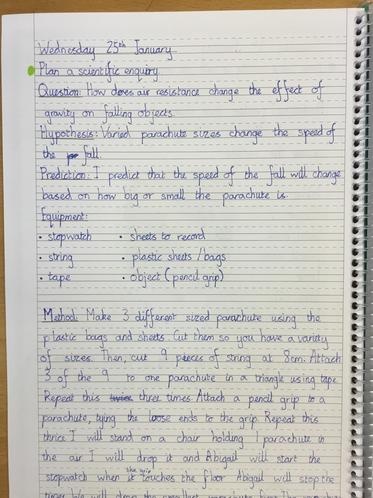 Wednesday 25th January
Plan a scientific enquiry
Question: How does air resistance change the effect of
gravity on falling objects.
Hypothesis: Varied parachute sizes change the speed of
the fall.
Prediction: I predict that the speed of the fall will change
based on how big or small the parachute is.
Equipment:
• stopwatch • sheets to record
• string • plastic sheets / bags
• tape • object (pencil grip)
Method: Make 3 different sized parachute using the
plastic bags and sheets. Cut them so you have a variety
of sizes. Then, cut 9 pieces of string at 8cm. Attach
3 of the 9 to one parachute in a triangle using tape.
Repeat this three times. Attach a pencil grip to a
parachute, tying the loose ends to the grip. Repeat this
thrice. I will stand on a chair holding 1 parachute in
the air. I will drop it and Abigail will start the
stopwatch when the grip touches the floor Abigail will stop the
timer. We will drop the